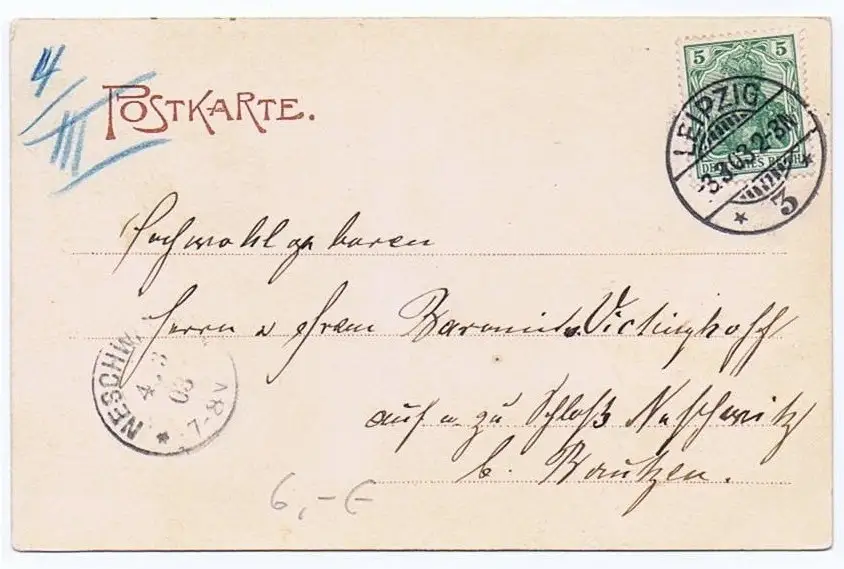 4/III
POSTKARTE.
5 5
DEUTSCHES REICH
LEIPZIG
3.3.03.2-3N.
* 3 *
Hochwohlgeboren
Herrn u Frau Baronin v. Vietinghoff
NESCHW
4.3
03
*
auf u. zu Schloß Neschwitz
b. Bautzen.
6,-€